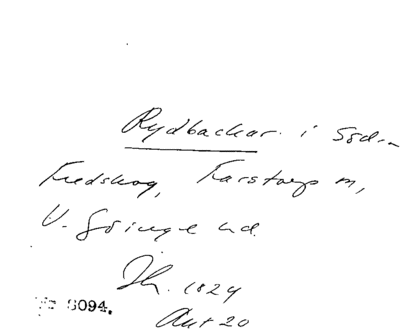 Rydbackar i Söd.-
Fredskog, Farstorp m,
V. Göinge hd.
1824
Akt 20
6094.